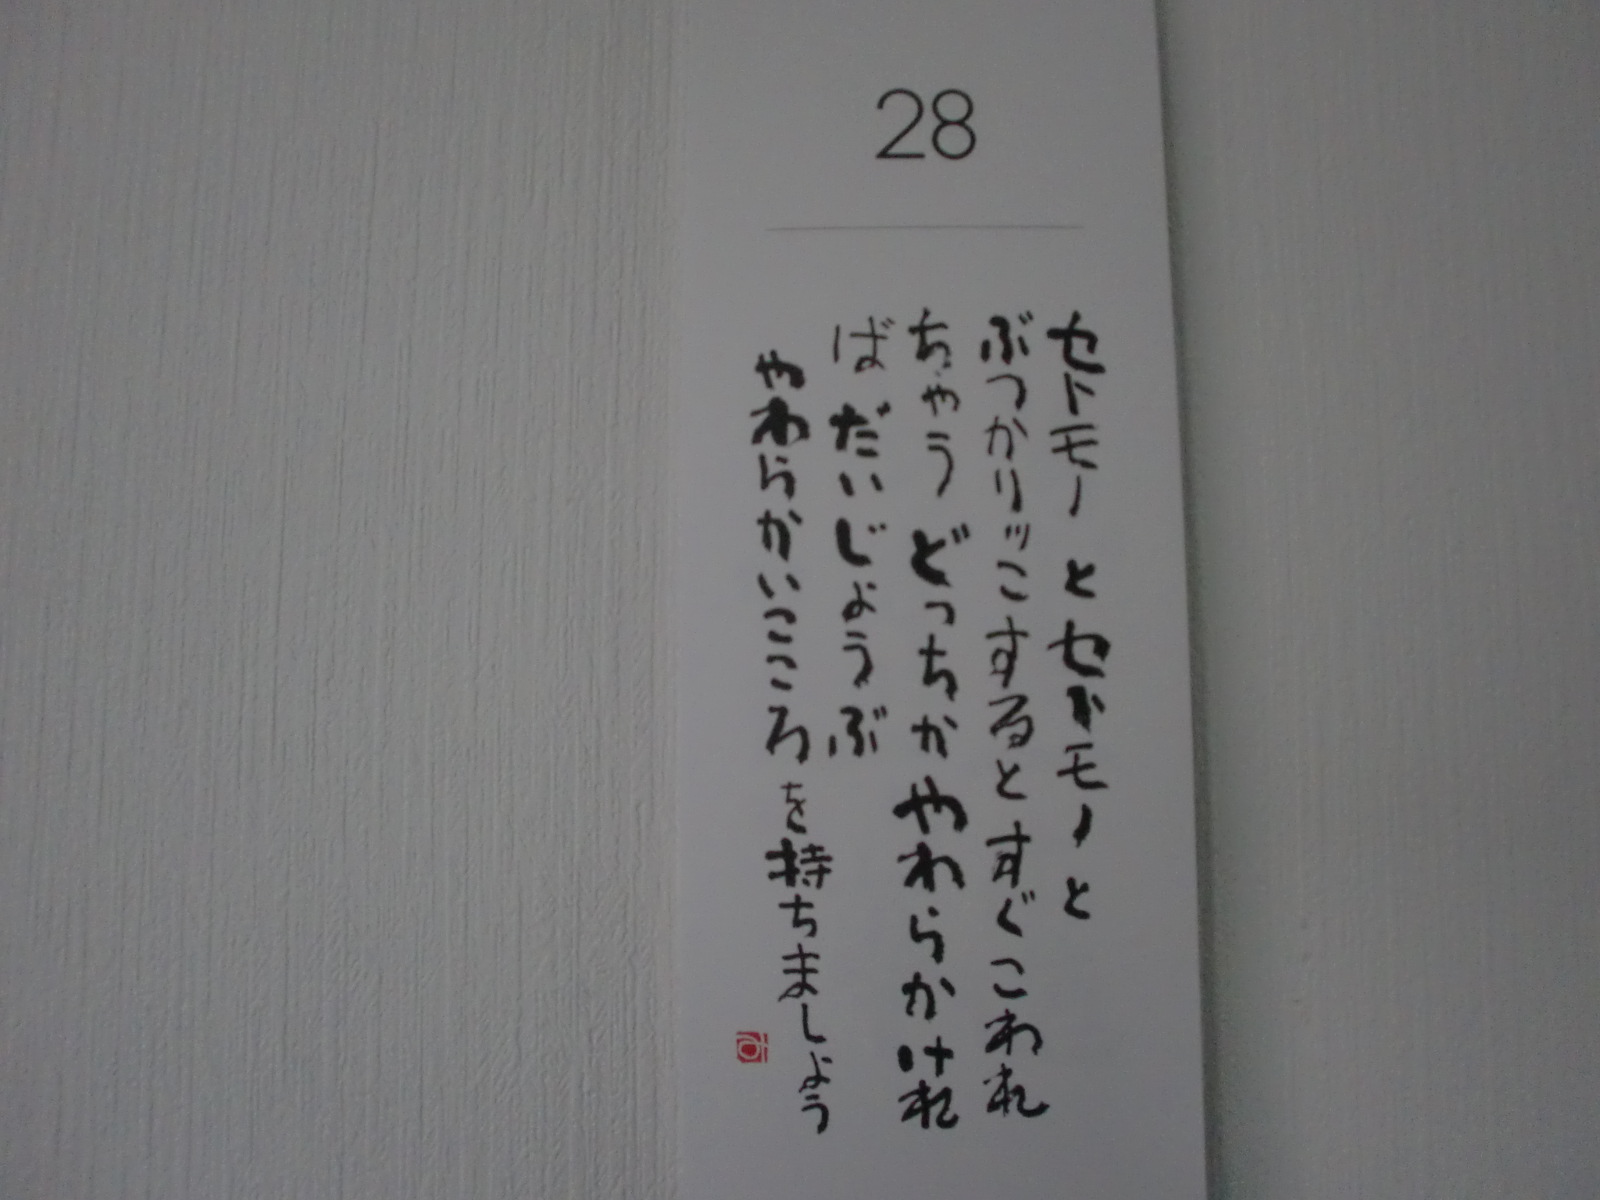 28
セトモノとセトモノと
ぶつかりッこするとすぐこわれ
ちゃう どっちかやわらかけれ
ば だいじょうぶ
やわらかいこころを持ちましょう
み